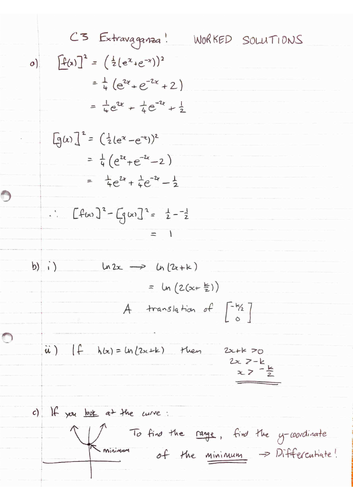 C3 Extravaganza! WORKED SOLUTIONS
a) [f(x)]² = (½(eˣ+e⁻ˣ))²
= ¼(e²ˣ+e⁻²ˣ+2)
= ¼e²ˣ + ¼e⁻²ˣ + ½
[g(x)]² = (½(eˣ-e⁻ˣ))²
= ¼(e²ˣ+e⁻²ˣ-2)
= ¼e²ˣ + ¼e⁻²ˣ - ½
∴ [f(x)]² - [g(x)]² = ½ - -½
= 1
b) i) ln2x → ln(2x+k)
= ln(2(x+k/2))
A translation of [-k/2 0]
ii) If h(x) = ln(2x+k) then 2x+k > 0
2x > -k
x > -k/2
c) If you look at the curve:
minimum
To find the range, find the y-coordinate
of the minimum → Differentiate!